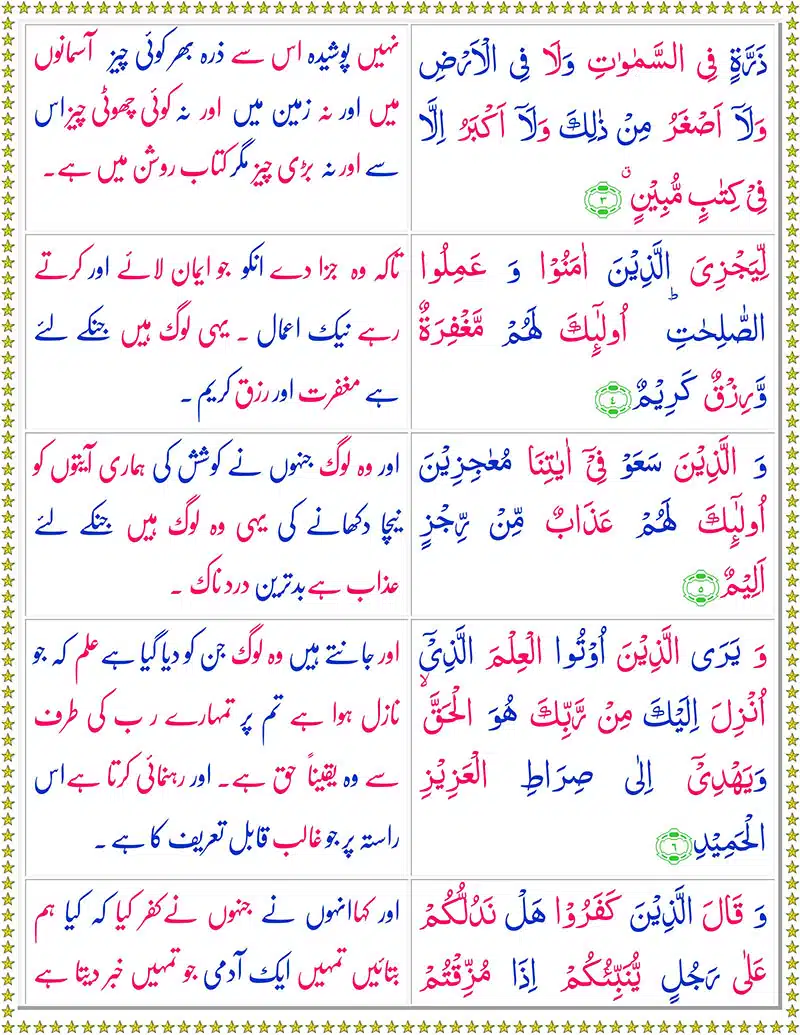 ذَرَّةٍ فِي السَّمٰوٰتِ وَلَا فِي الْاَرْضِ
وَلَآ اَصْغَرُ مِنْ ذٰلِكَ وَلَآ اَكْبَرُ اِلَّا
فِيْ كِتٰبٍ مُّبِيْنٍ ۙ ٣
نہیں پوشیدہ اس سے ذرہ بھر کوئی چیز آسمانوں
میں اور نہ زمین میں اور نہ کوئی چھوٹی چیز اس
سے اور نہ بڑی چیز مگر کتاب روشن میں ہے۔
لِّيَجْزِيَ الَّذِيْنَ اٰمَنُوْا وَ عَمِلُوا
الصّٰلِحٰتِ ؕ اُولٰٓئِكَ لَهُمْ مَّغْفِرَةٌ
وَّرِزْقٌ كَرِيْمٌ ٤
تاکہ وہ جزا دے انکو جو ایمان لائے اور کرتے
رہے نیک اعمال ۔ یہی لوگ ہیں جنکے لئے
ہے مغفرت اور رزق کریم ۔
وَ الَّذِيْنَ سَعَوْ فِيْٓ اٰيٰتِنَا مُعٰجِزِيْنَ
اُولٰٓئِكَ لَهُمْ عَذَابٌ مِّنْ رِّجْزٍ
اَلِيْمٌ ٥
اور وہ لوگ جنہوں نے کوشش کی ہماری آیتوں کو
نیچا دکھانے کی یہی وہ لوگ ہیں جنکے لئے
عذاب ہے بدترین درد ناک ۔
وَ يَرَى الَّذِيْنَ اُوْتُوا الْعِلْمَ الَّذِيْٓ
اُنْزِلَ اِلَيْكَ مِنْ رَّبِّكَ هُوَ الْحَقَّ ۙ
وَيَهْدِيْٓ اِلٰى صِرَاطِ الْعَزِيْزِ
الْحَمِيْدِ ٦
اور جانتے ہیں وہ لوگ جن کو دیا گیا ہے علم کہ جو
نازل ہوا ہے تم پر تمہارے رب کی طرف
سے وہ یقیناً حق ہے۔ اور رہنمائی کرتا ہے اس
راستہ پر جو غالب قابل تعریف کا ہے ۔
وَ قَالَ الَّذِيْنَ كَفَرُوْا هَلْ نَدُلُّكُمْ
عَلٰى رَجُلٍ يُّنَبِّئُكُمْ اِذَا مُزِّقْتُمْ
اور کہا انہوں نے جنہوں نے کفر کیا کہ کیا ہم
بتائیں تمہیں ایک آدمی جو تمہیں خبر دیتا ہے